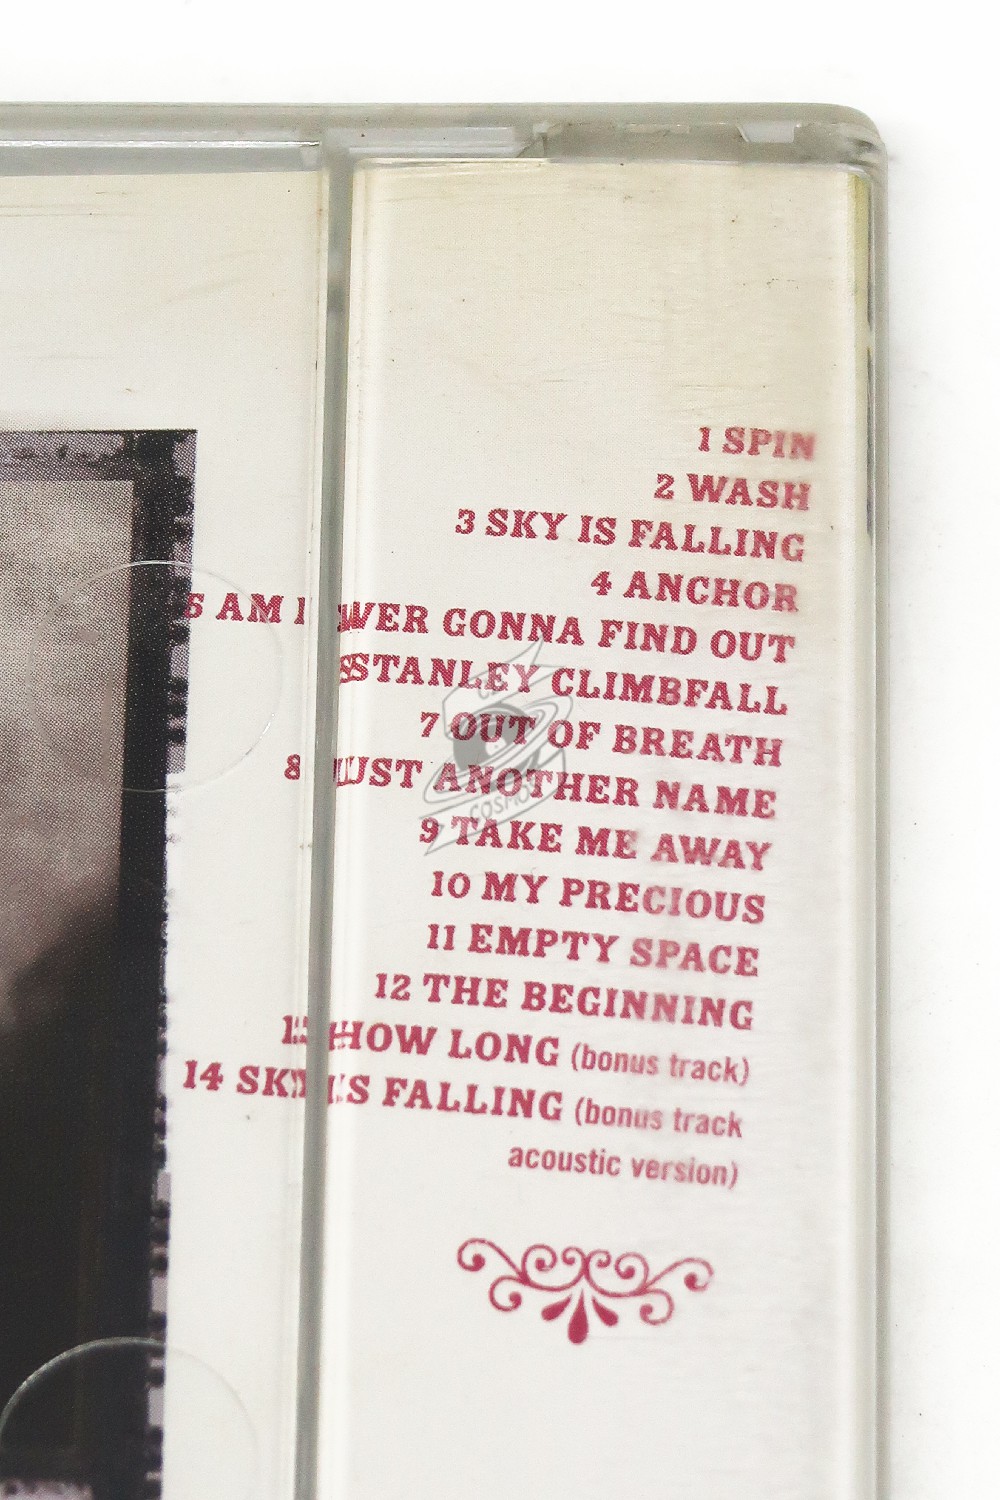 1 SPIN
2 WASH
3 SKY IS FALLING
4 ANCHOR
5 AM I EVER GONNA FIND OUT
6 STANLEY CLIMBFALL
7 OUT OF BREATH
8 JUST ANOTHER NAME
9 TAKE ME AWAY
10 MY PRECIOUS
11 EMPTY SPACE
12 THE BEGINNING
13 HOW LONG (bonus track)
14 SKY IS FALLING (bonus track
acoustic version)
CD
COSMOS